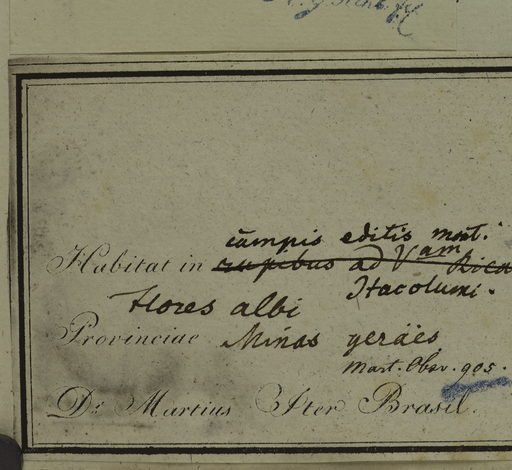 campis editis mont.
Habitat in rupibus ad Vam Rica
Itacolumi.
flores albi
Provinciae Minas geraës
Mart. Obsr. 905.
Dr. Martius Iter Brasil.